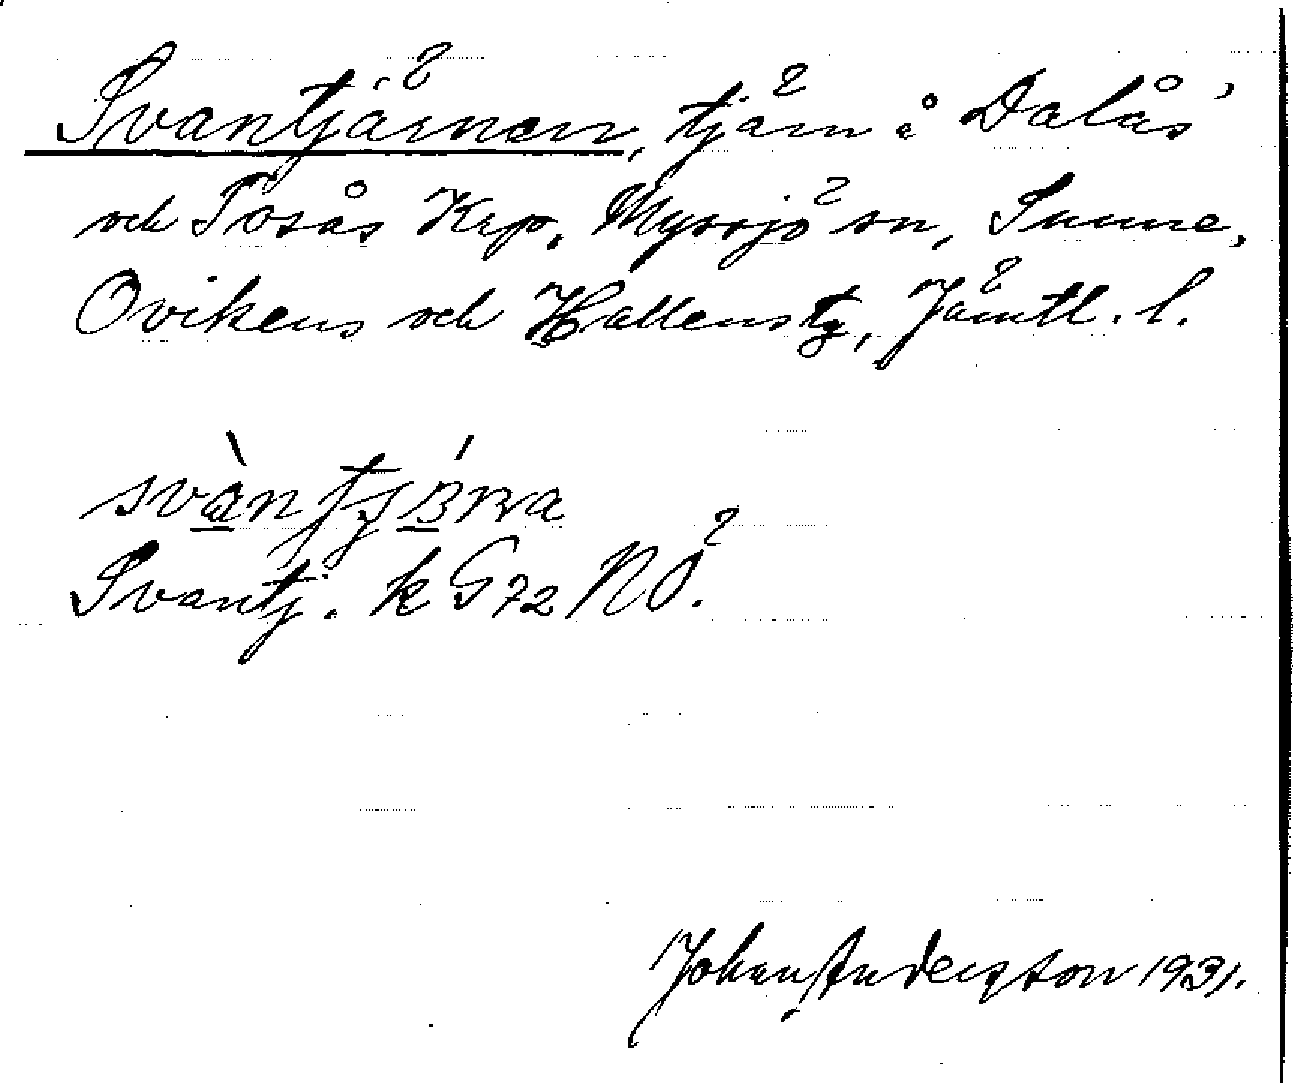 Svantjärnen, tjärn å Dalås'
och Tosås Krp, Myssjö sn, Sunne,
Ovikens och Hallens tg, Jämtl. l.
Svantj. k G72 NÖ.
Johan Anderston 1931.